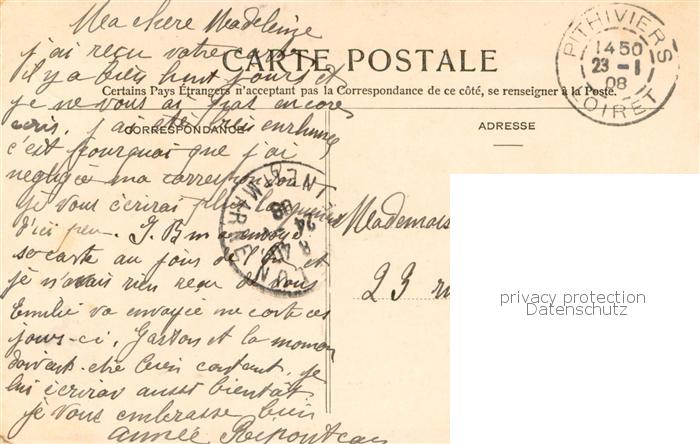 Ma chere Madeleine
j'ai reçu votre carte
il y a bien huit jours et
je ne vous ai pas encore
écris, j'ai été bien enrhumée
c'est pourquoi que j'ai
négligée ma correspondance
je vous écrirai plus longuement
d'ici peu. J. B m'a envoyé
sa carte au jour de l'an et
je n'avais rien reçu de vous
Emilie va envoyée une carte ces
jours-ci. Gaston et la maman
doivent être bien content, je
lui écrirai aussi bientôt.
je vous embrasse bien
CARTE POSTALE
Certains Pays Étrangers n'acceptant pas la Correspondance de ce côté, se renseigner à la Poste.
CORRESPONDANCE
ADRESSE
PITHIVIERS
14 50
23 - 1
08
LOIRET
ET-MARNE
24
08
Mademois
23 ru
privacy protection
Datenschutz